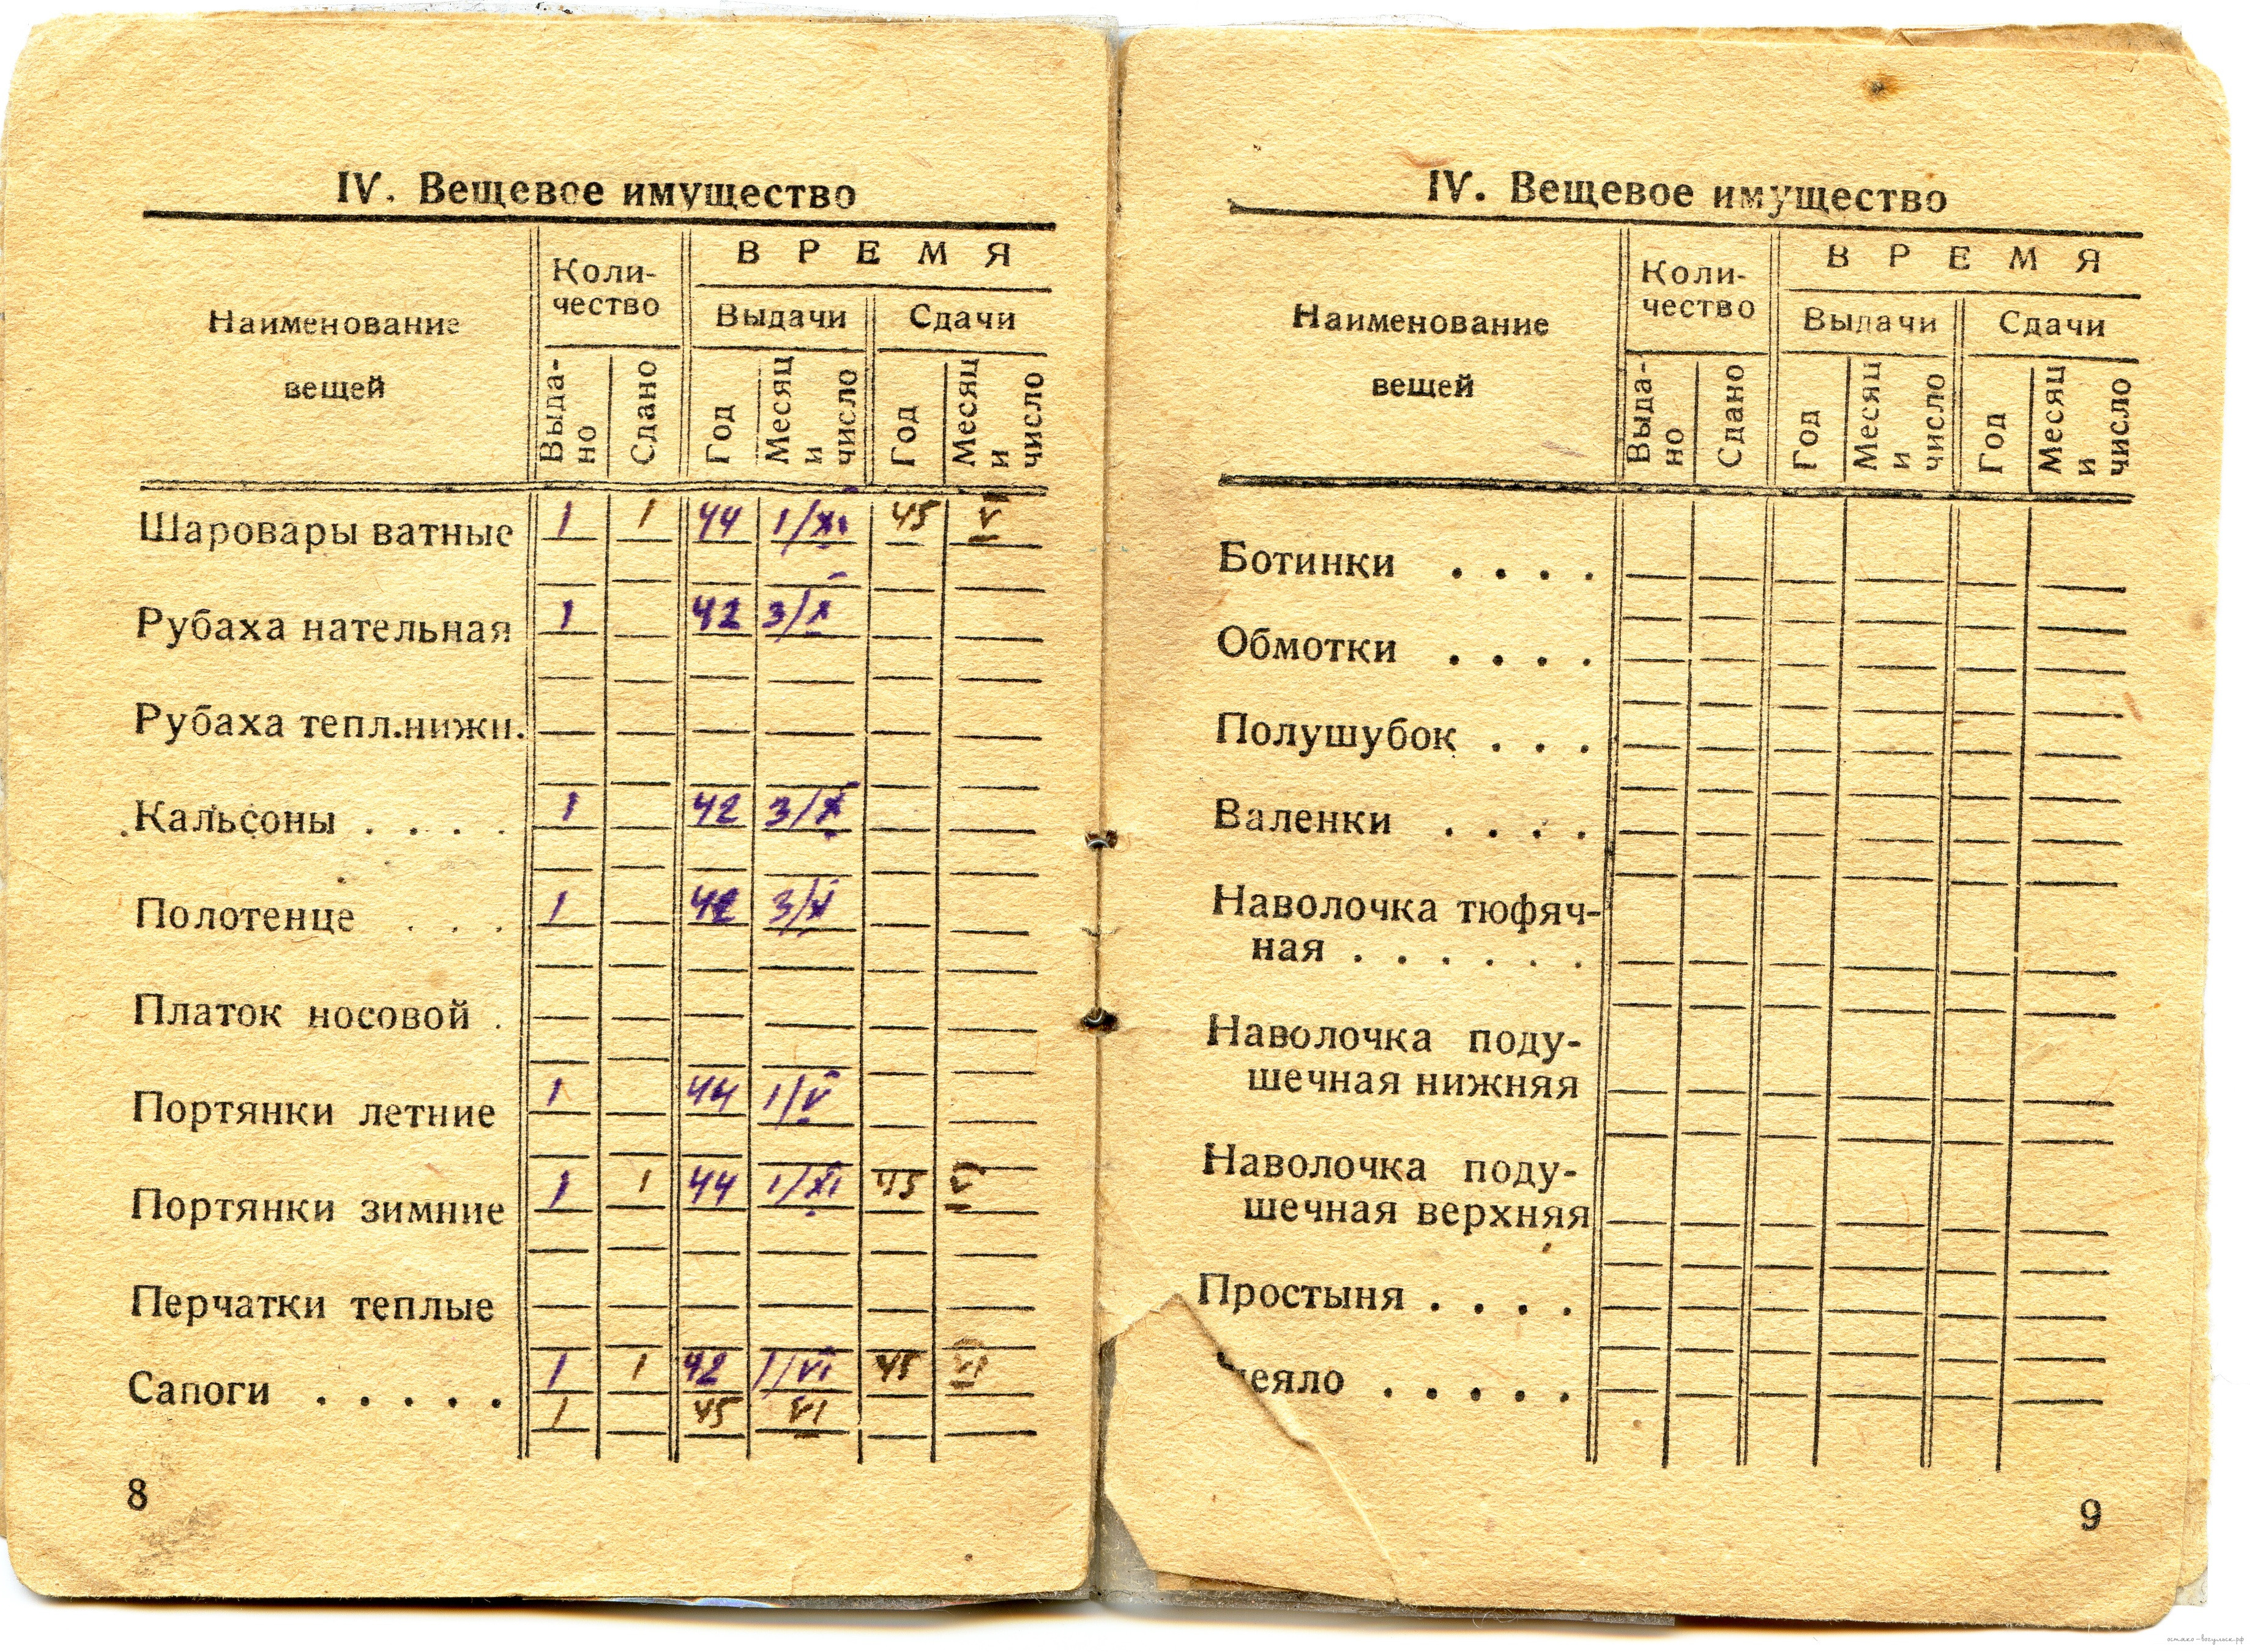 IV. Вещевое имущество
Наименование вещей
Коли-
чество
ВРЕМЯ
Выдачи
Сдачи
Выда-
но
Сдано
Год
Месяц
и
число
Год
Месяц
и
число
Шаровары ватные 1 1 44 1/XI 45 V
Рубаха нательная 1 42 3/X
Рубаха тепл.нижн.
Кальсоны . . . . 1 42 3/X
Полотенце . . . 1 42 3/X
Платок носовой .
Портянки летние 1 44 1/V
Портянки зимние 1 1 44 1/XI 45 V
Перчатки теплые
Сапоги . . . . . 1 1 42 1/VI 45 VI
1 45 VI
8
IV. Вещевое имущество
Наименование вещей
Коли-
чество
ВРЕМЯ
Выдачи
Сдачи
Выда-
но
Сдано
Год
Месяц
и
число
Год
Месяц
и
число
Ботинки . . . .
Обмотки . . . .
Полушубок . . .
Валенки . . . .
Наволочка тюфяч-
ная . . . . . .
Наволочка поду-
шечная нижняя
Наволочка поду-
шечная верхняя
Простыня . . . .
еяло . . . . .
9